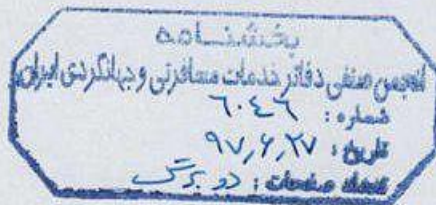 بخشنامه
انجمن صنفی دفاتر خدمات مسافرتی و جهانگردی ایران
شماره : ٦٠٤٦
تاریخ : ۹۷,۶,۲۷
تعداد صفحات : دو برگ